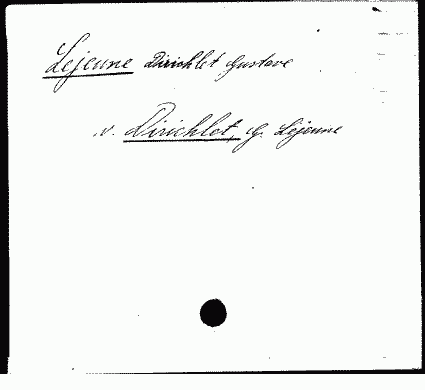 Lejeune Dirichlet Gustave
v. Dirichlet, G. Lejeune